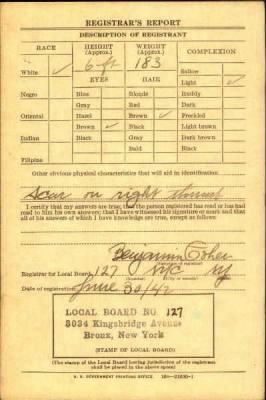 REGISTRAR'S REPORT
DESCRIPTION OF REGISTRANT
RACE HEIGHT (Approx.) WEIGHT (Approx.) COMPLEXION
White ✓ 6 ft 183 Sallow
EYES HAIR Light ✓
Negro Blue Blonde Ruddy
Gray Red Dark
Oriental Hazel Brown ✓ Freckled
Brown ✓ Black Light brown
Indian Black Gray Dark brown
Bald Black
Filipino
Other obvious physical characteristics that will aid in identification
Scar on right thumb
I certify that my answers are true; that the person registered has read or has had
read to him his own answers; that I have witnessed his signature or mark and that
all of his answers of which I have knowledge are true, except as follows:
Benjamin Cohen
(Signature of registrar)
Registrar for Local Board 127 NYC NY
Date of registration June 30/42
LOCAL BOARD NO. 127
3034 Kingsbridge Avenue
Bronx, New York
(STAMP OF LOCAL BOARD)
(The stamp of the Local Board having jurisdiction of the registrant
shall be placed in the above space)
U. S. GOVERNMENT PRINTING OFFICE 16—21630-1